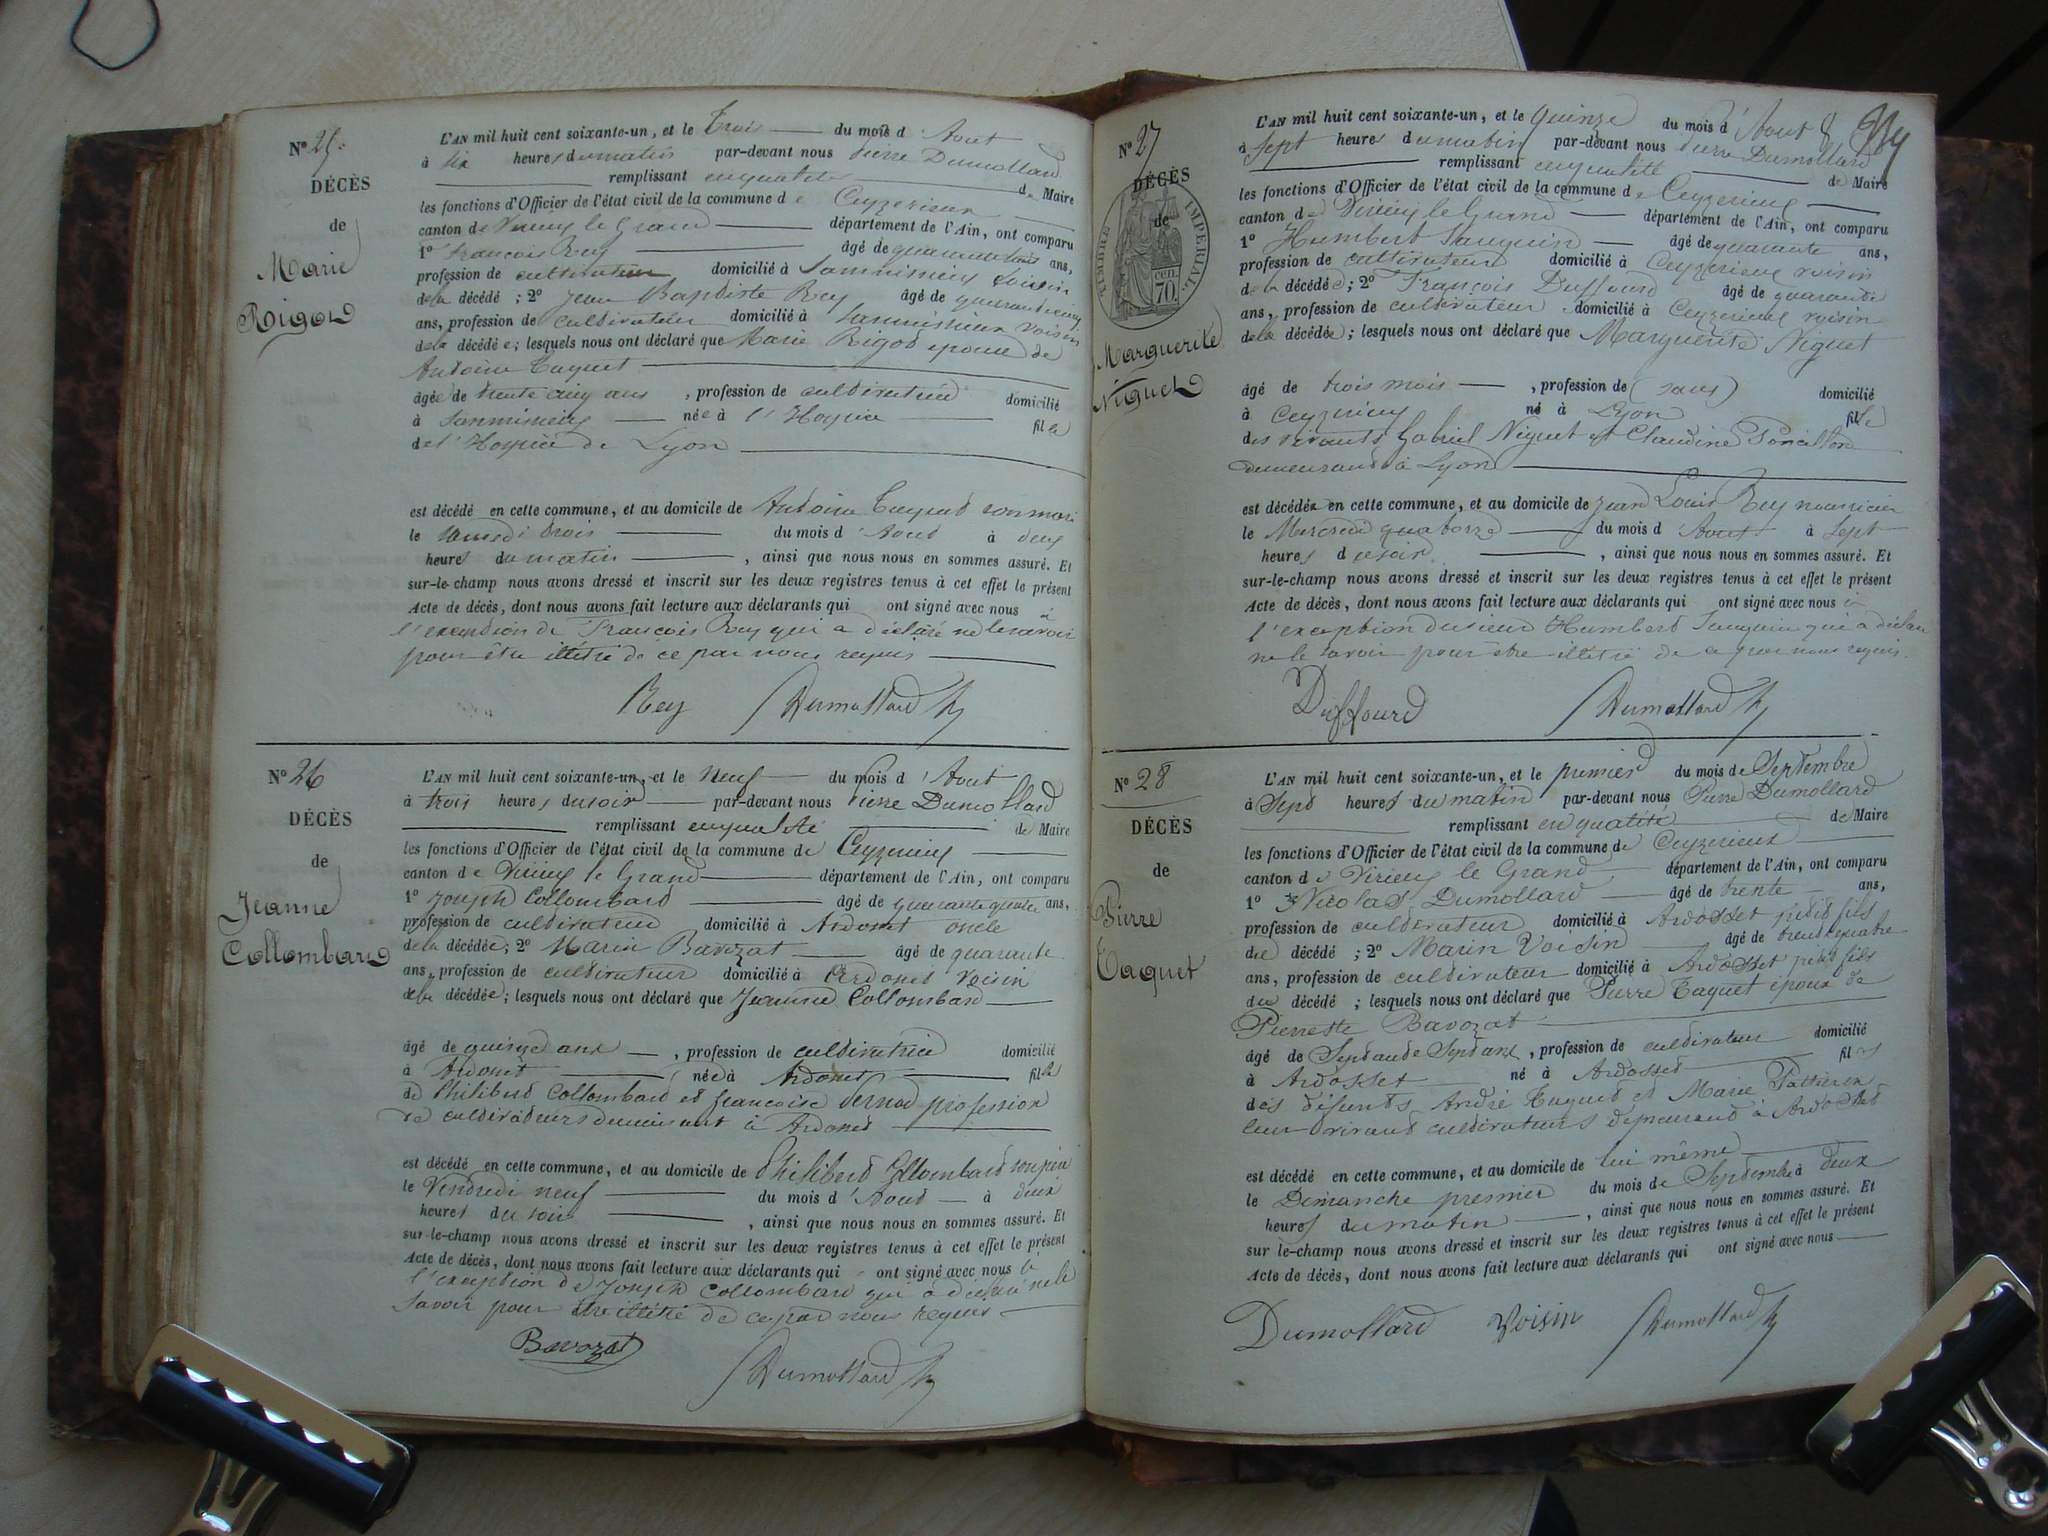 N° 25.
DÉCÈS
de
Marie
Rigod
L'AN mil huit cent soixante-un, et le Trois du mois d'Aout
à six heures du matin par-devant nous Pierre Dumollard
remplissant en qualité de Maire
les fonctions d'Officier de l'état civil de la commune de Ceyzerieux
canton de Virieu le Grand département de l'Ain, ont comparu
1° François Rey âgé de ans,
profession de cultivateur domicilié à voisin
de la décédé ; 2° Jean Baptiste Rey âgé de
ans, profession de cultivateur domicilié à voisin
de la décédée ; lesquels nous ont déclaré que Marie Rigod epouse de
Antoine Taquet
âgée de trente cinq ans , profession de cultivatrice domicilié
à née à l'Hospice fille
de l'Hospice de Lyon
est décédé en cette commune, et au domicile de Antoine Taquet son mari
le samedi trois du mois d'Aout à deux
heures du matin , ainsi que nous nous en sommes assuré. Et
sur-le-champ nous avons dressé et inscrit sur les deux registres tenus à cet effet le présent
Acte de décès, dont nous avons fait lecture aux déclarants qui ont signé avec nous à
l'exception de François Rey qui a déclaré ne le savoir
pour être illétré de ce par nous requis
Rey Dumollard
N° 26
DÉCÈS
de
Jeanne
Collombard
L'AN mil huit cent soixante-un, et le Neuf du mois d'Aout
à trois heures du soir par-devant nous Pierre Dumollard
remplissant en qualité de Maire
les fonctions d'Officier de l'état civil de la commune de Ceyzerieu
canton de Virieu le Grand département de l'Ain, ont comparu
1° Joseph Collombard âgé de quarante quatre ans,
profession de cultivateur domicilié à Ardonet oncle
de la décédée ; 2° Marin Bavozat âgé de quarante
ans, profession de cultivateur domicilié à Ardonet voisin
de la décédée ; lesquels nous ont déclaré que Jeanne Collombard
âgé de quinze ans , profession de cultivatrice domicilié
à Ardonet née à Ardonet fille
de Philibert Collombard et Françoise Vernod profession
de cultivateurs demeurant à Ardonet
est décédé en cette commune, et au domicile de Philibert Collombard son père
le Vendredi neuf du mois d'Aout à deux
heures du soir , ainsi que nous nous en sommes assuré. Et
sur-le-champ nous avons dressé et inscrit sur les deux registres tenus à cet effet le présent
Acte de décès, dont nous avons fait lecture aux déclarants qui ont signé avec nous à
l'exception de Joseph Collombard qui a déclaré ne le
savoir pour être illétré de ce par nous requis
Bavozat
Dumollard
N° 27
DÉCÈS
de
TIMBRE IMPERIAL
70 cen.
Marguerite
Niguet
L'AN mil huit cent soixante-un, et le quinze du mois d'Aout
à sept heures du matin par-devant nous Pierre Dumollard
remplissant en qualité de Maire
les fonctions d'Officier de l'état civil de la commune de Ceyzerieu
canton de Virieu le Grand département de l'Ain, ont comparu
1° Humbert Sauquin âgé de quarante ans,
profession de cultivateur domicilié à Ceyzerieu voisin
de la décédée ; 2° François Duffourd âgé de quarante
ans, profession de cultivateur domicilié à Ceyzerieu voisin
de la décédée ; lesquels nous ont déclaré que Marguerite Niguet
âgé de trois mois , profession de (sans) domicilié
à Ceyzerieu né à Lyon fille
des vivants Gabriel Niguet et Claudine
demeurand à Lyon
est décédée en cette commune, et au domicile de Jean Louis Rey nourricier
le Mercredi quatorze du mois d'Aout à sept
heures du soir , ainsi que nous nous en sommes assuré. Et
sur-le-champ nous avons dressé et inscrit sur les deux registres tenus à cet effet le présent
Acte de décès, dont nous avons fait lecture aux déclarants qui ont signé avec nous à
l'exception du sieur Humbert Sauquin qui a déclaré
ne le savoir pour etre illétré de ce par nous requis.
Duffourd Dumollard
N° 28
DÉCÈS
de
Pierre
Taquet
L'AN mil huit cent soixante-un, et le premier du mois de Septembre
à Sept heures du matin par-devant nous Pierre Dumollard
remplissant en qualité de Maire
les fonctions d'Officier de l'état civil de la commune de Ceyzerieux
canton de Virieu le Grand département de l'Ain, ont comparu
1° Nicolas Dumollard âgé de trente ans,
profession de cultivateur domicilié à Ardosset petit fils
du décédé ; 2° Marin Voisin âgé de trente quatre
ans, profession de cultivateur domicilié à Ardosset petit fils
du décédé ; lesquels nous ont déclaré que Pierre Taquet époux de
Pierrette Bavozat
âgé de Septante Sept ans , profession de cultivateur domicilié
à Ardosset né à Ardosset fils
des défunts André Taquet et Marie
leur vivant cultivateurs demeurand à Ardosset
est décédé en cette commune, et au domicile de lui même
le Dimanche premier du mois de Septembre à deux
heures du matin , ainsi que nous nous en sommes assuré. Et
sur le-champ nous avons dressé et inscrit sur les deux registres tenus à cet effet le présent
Acte de décès, dont nous avons fait lecture aux déclarants qui ont signé avec nous
Dumollard Voisin Dumollard